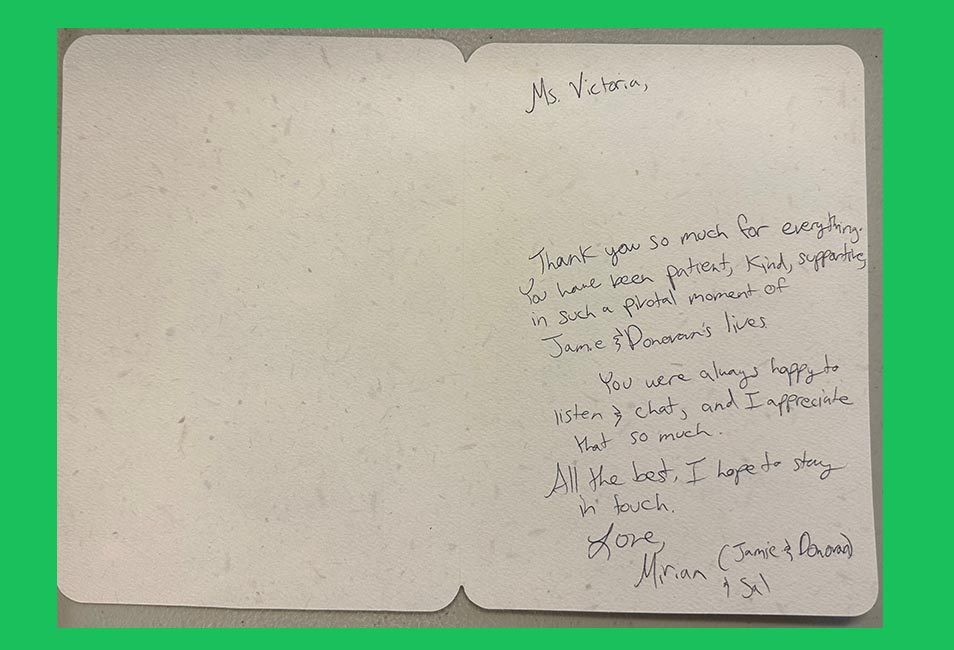 Ms. Victoria,
Thank you so much for everything.
You have been patient, kind, supportive,
in such a pivotal moment of
Jamie & Donovan's lives.
You were always happy to
listen & chat, and I appreciate
that so much.
All the best, I hope to stay
in touch.
Love,
Mirian (Jamie & Donovan)
& Sal